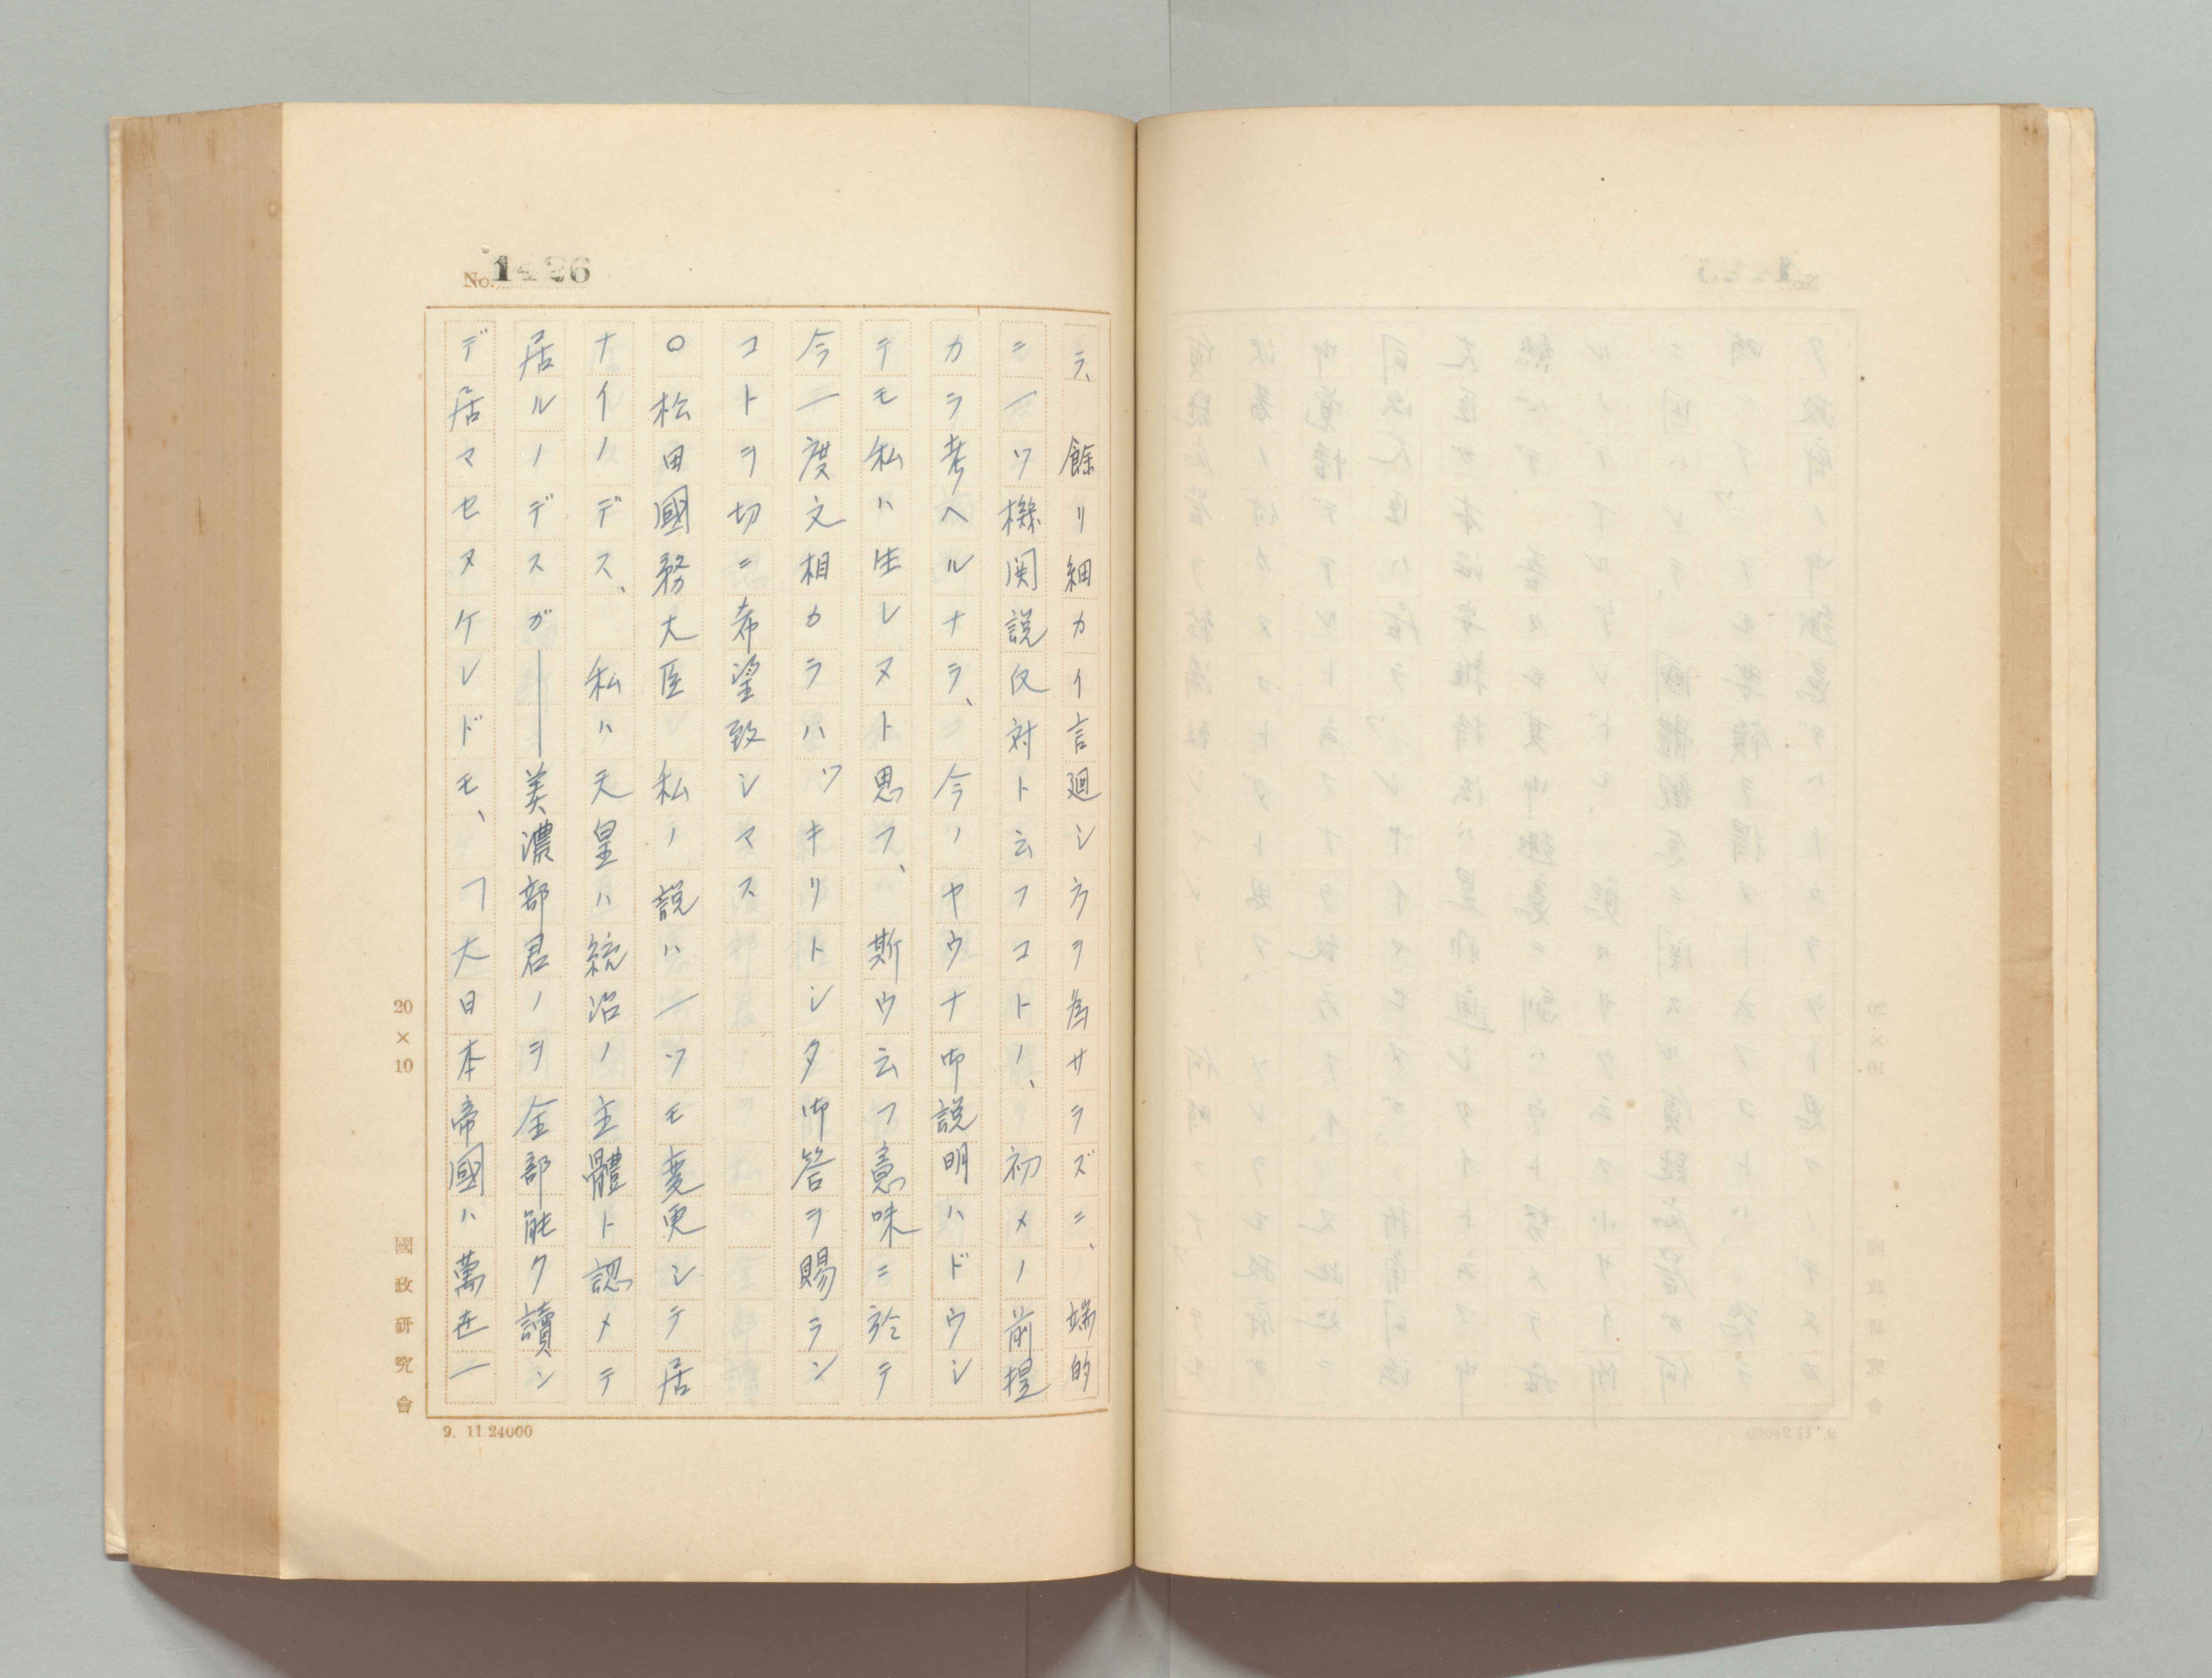 No. 1426
ラ、餘リ細カイ言廻シ方ヲ為サラズニ、端的
ニ一ツ機関説反対ト云フコトノ、初メノ前提
カラ考ヘルナラ、今ノヤウナ御説明ハドウシ
テモ私ハ生レヌト思フ、斯ウ云フ意味ニ於テ
今一度文相カラハツキリトシタ御答ヲ賜ラン
コトヲ切ニ希望致シマス
○松田國務大臣 私ノ説ハ一ツモ変更シテ居
ナイノデス、私ハ天皇ハ統治ノ主體ト認メテ
居ルノデスガ――美濃部君ノヲ全部能ク讀ン
デ居マセヌケレドモ、「大日本帝國ハ萬世一
20×10
國政研究會
9. 11 24000